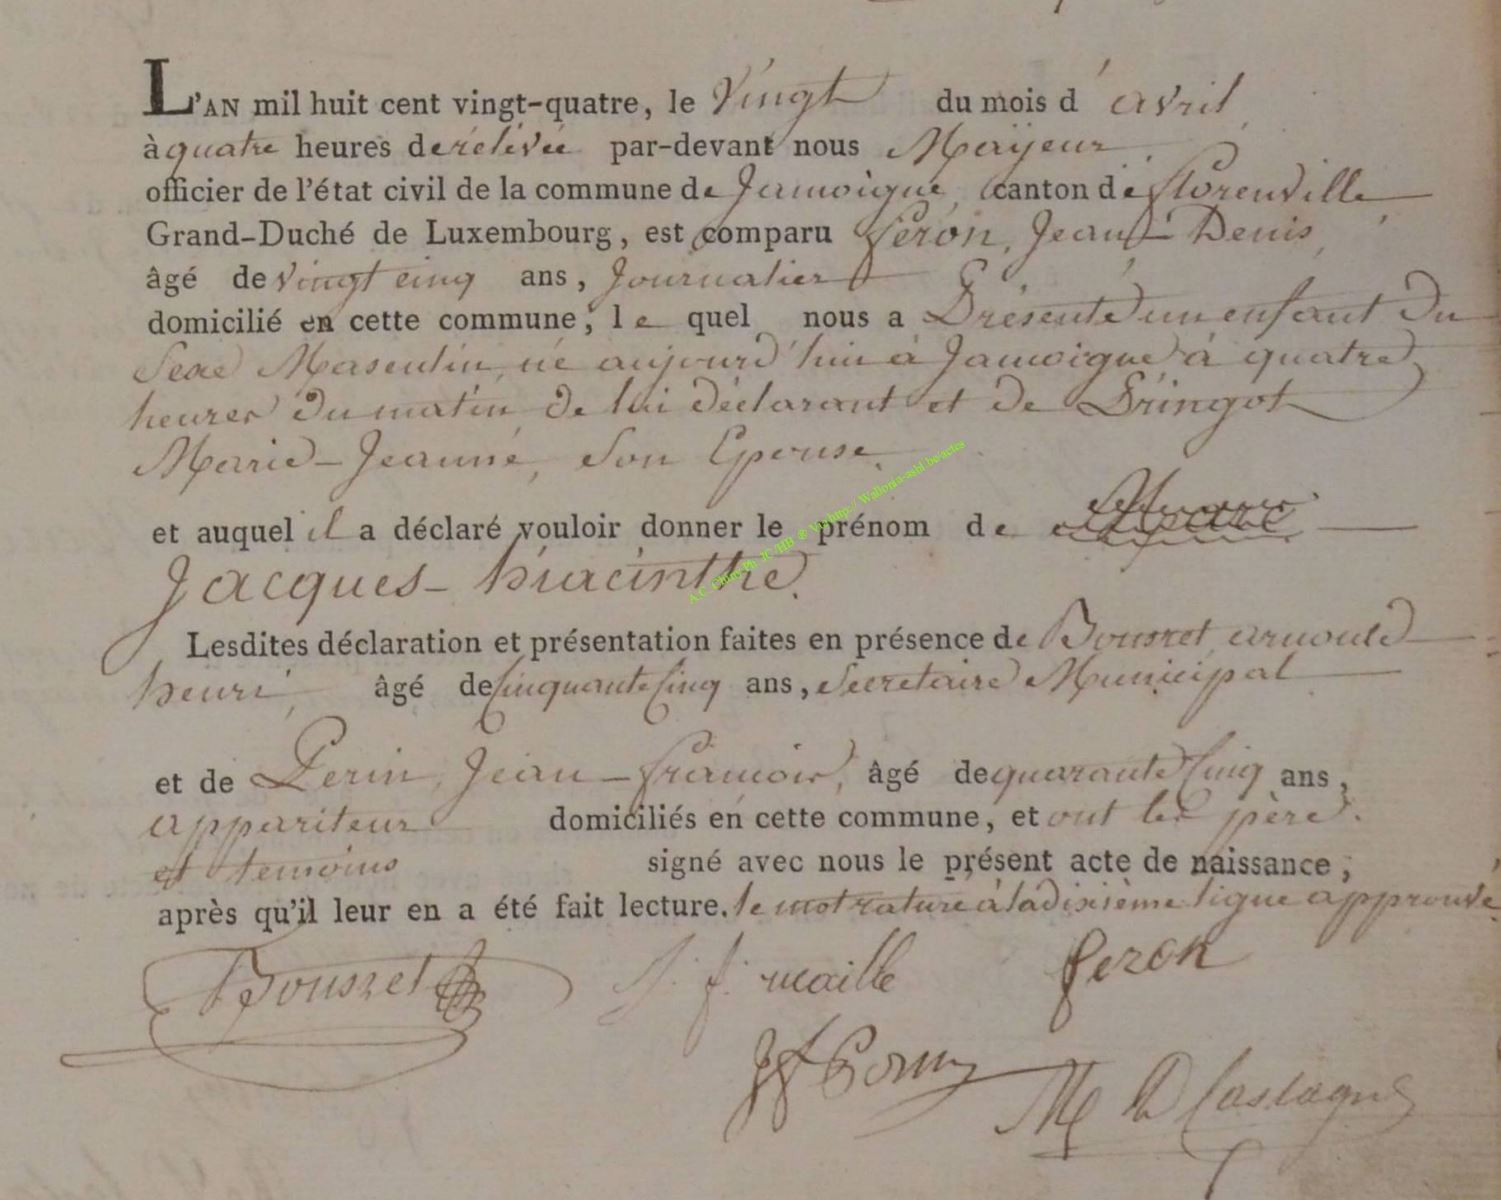 L'AN mil huit cent vingt-quatre, le Vingt du mois d'avril
à quatre heures de rélévée par-devant nous Mayeur
officier de l'état civil de la commune de Jamoigne canton de Florenville
Grand-Duché de Luxembourg, est comparu feron, Jean-Denis,
âgé de vingt cinq ans, Journalier
domicilié en cette commune, le quel nous a Présenté un enfant du
Sexe Masculin, né aujourd'hui à Jamoigne à quatre
heures du matin de lui déclarant et de Pringot
Marie-Jeanne, son Epouse.
et auquel il a déclaré vouloir donner le prénom de
Jacques-hiacinthe.
Lesdites déclaration et présentation faites en présence de Bousret arnould
henri, âgé de cinquante cinq ans, Secretaire Municipal
et de Perin, Jean-françois, âgé de quarante cinq ans,
appariteur domiciliés en cette commune, et ont les père
et temoins signé avec nous le présent acte de naissance,
après qu'il leur en a été fait lecture. le mot raturé à la dixième ligne approuvé
Bousret J. f. feron
M D Castagne
A.C. Chiny Ph. JC/HB ® Via http:// Wallonia-asbl.be/actes